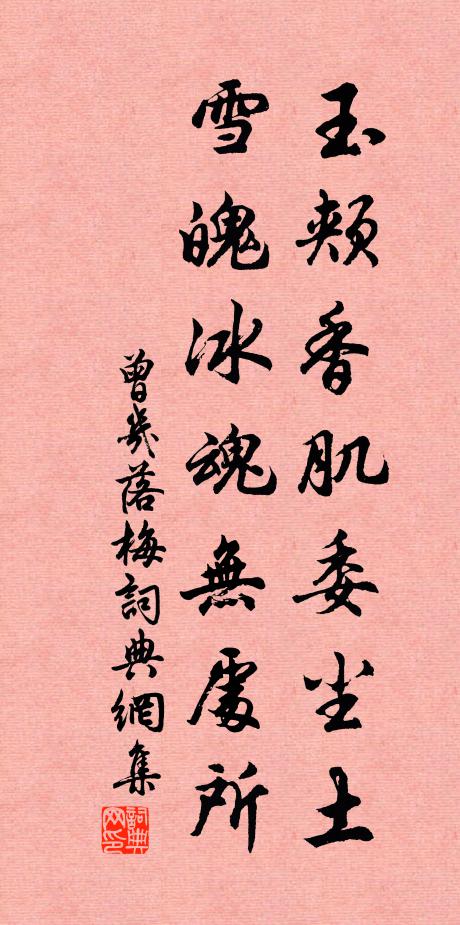 玉頰香肌委尘土
雪魄冰魂無處所
曾幾落梅詞典網集
詞典网印